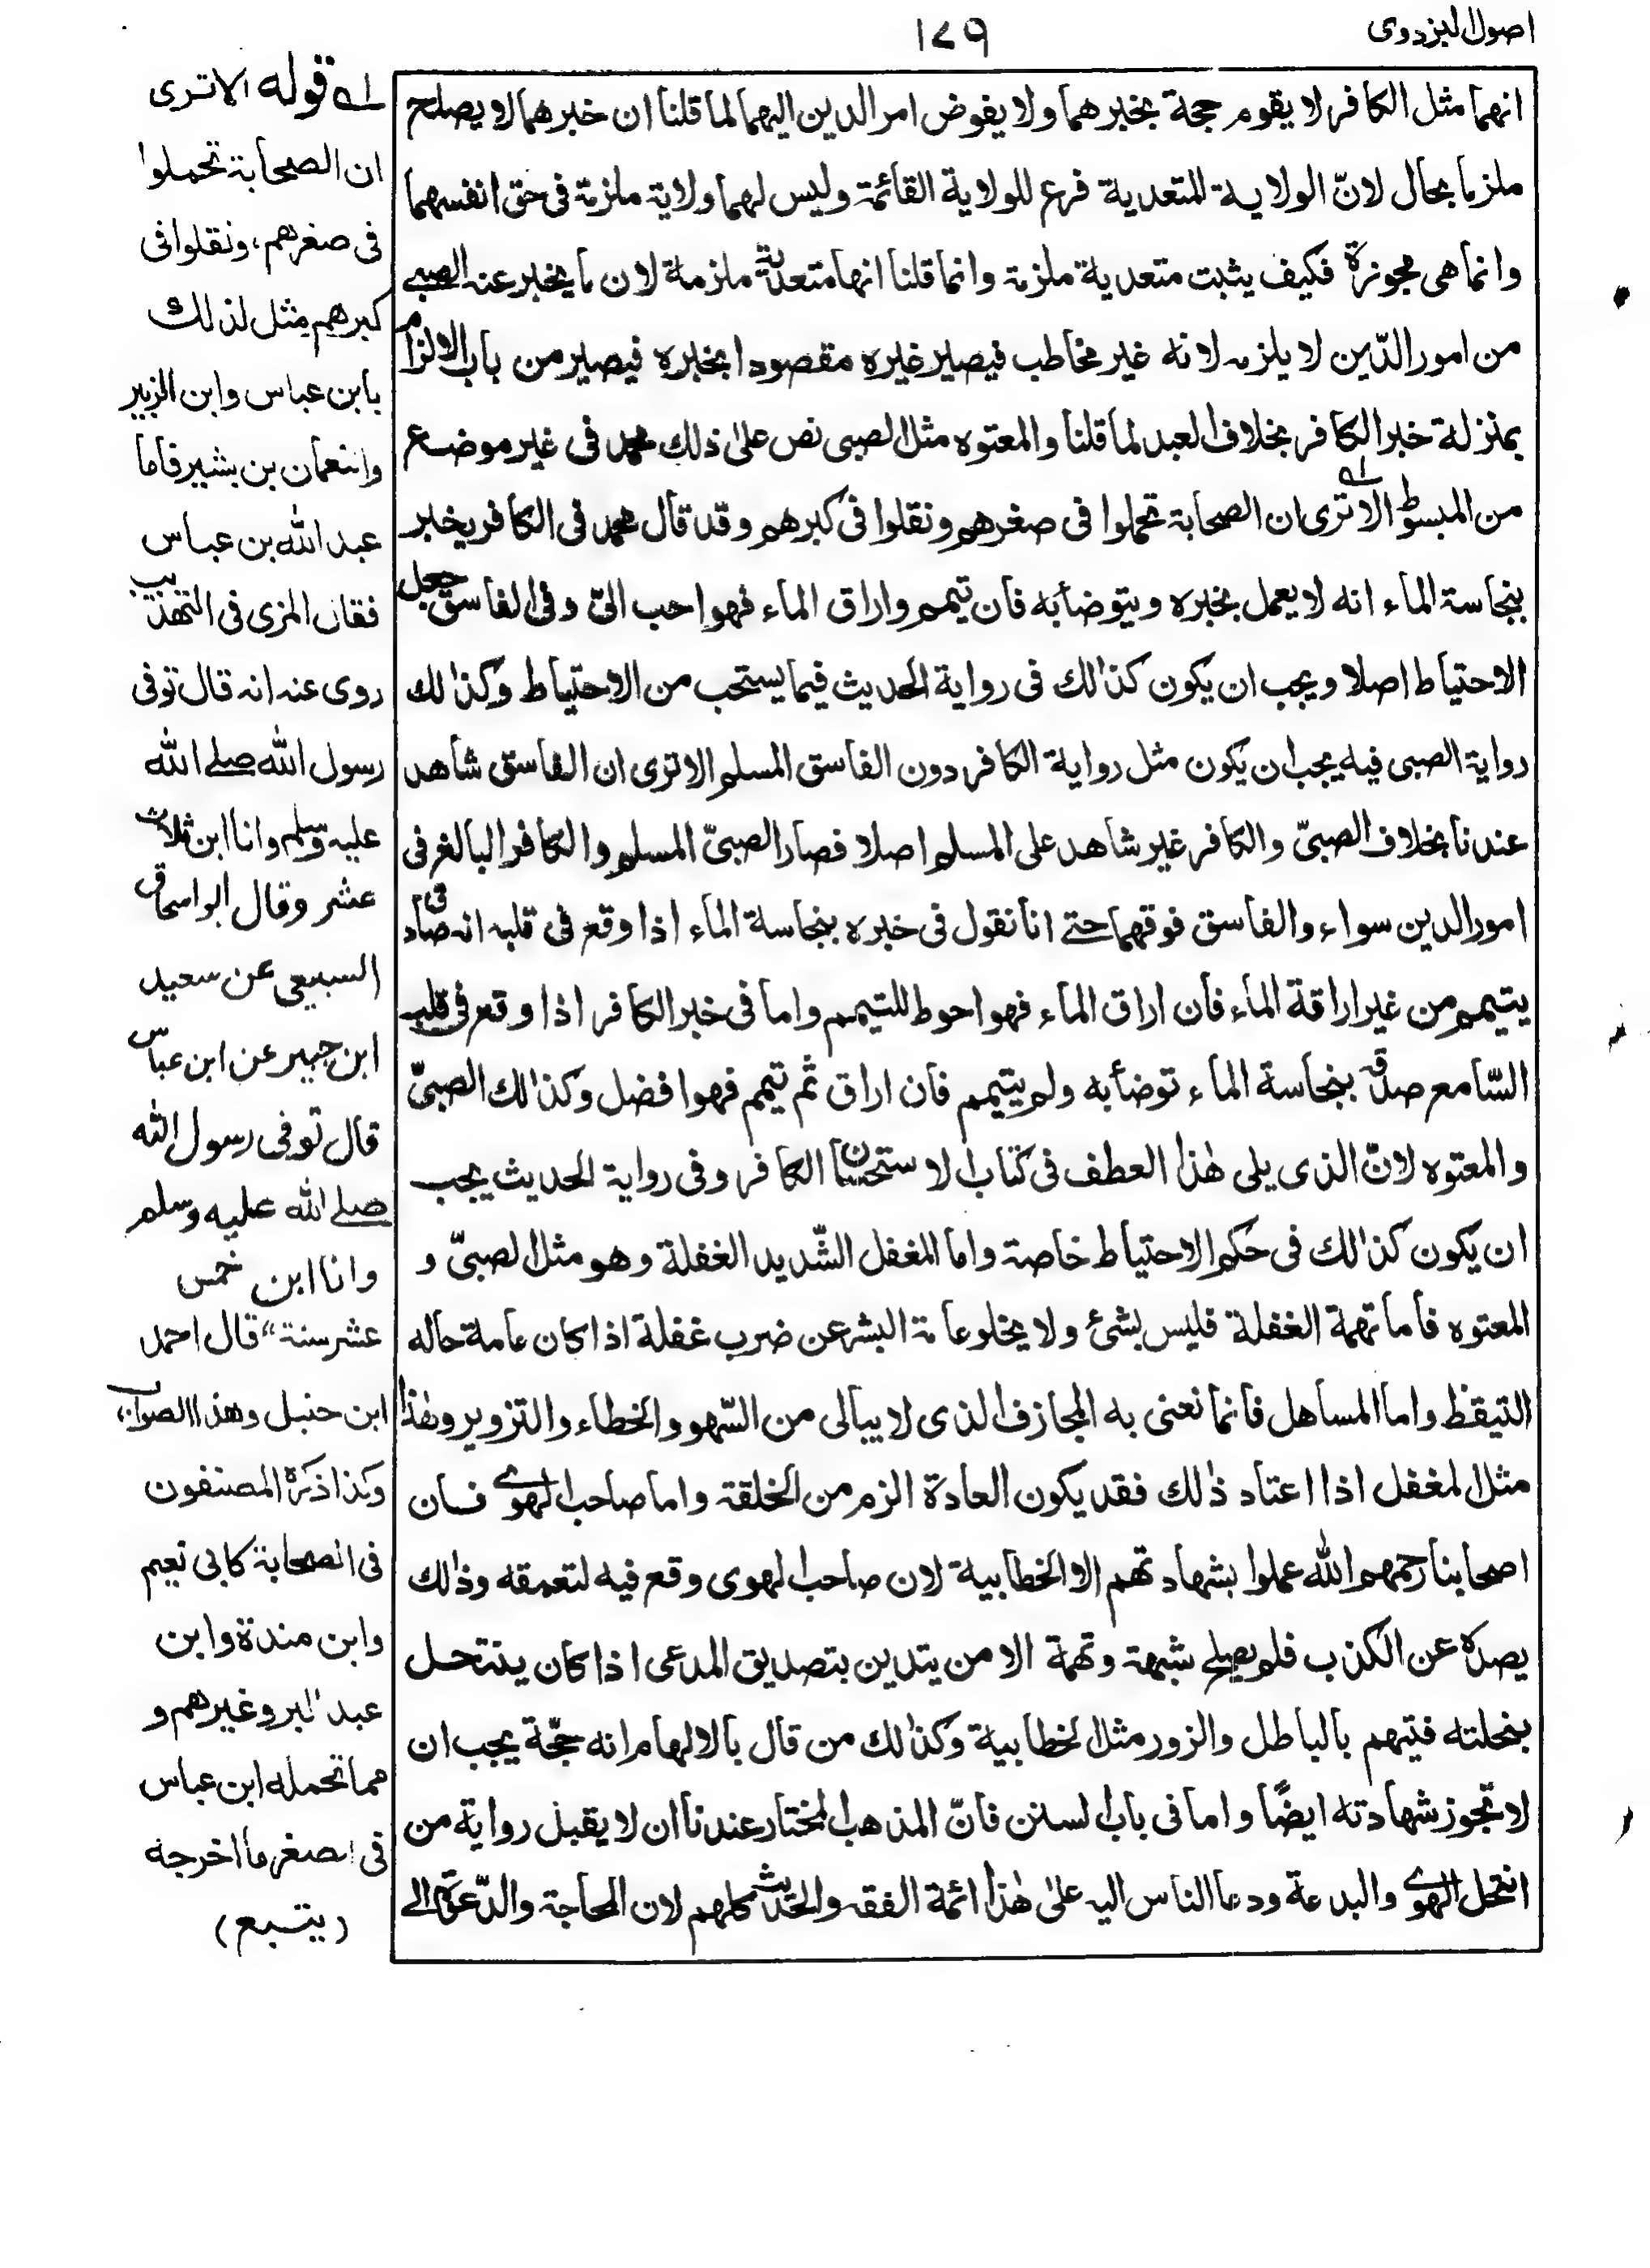 اصول البزدوی
۱۷۹
انهما مثل الكافر لا يقوم حجة بخبرهما ولا يفوض امر الدين اليهما لما قلنا ان خبرهما لا يصلح
ملزما بحال لانّ الولاية المتعدية فرع للولاية القائمة وليس لهما ولاية ملزمة فى حق انفسهما
وانما هى مجوزة فكيف يثبت متعدية ملزمة وانما قلنا انها متعدية ملزمة لان ما يخبر عنه الصبے
من امور الدّين لا يلزمه لانه غير مخاطب فيصير غيره مقصودا بخبره فيصير من باب الالزام
بمنزلة خبر الكافر بخلاف العبد لما قلنا والمعتوه مثل الصبى نص علىٰ ذٰلك محمد فى غير موضع
من المبسوط الا ترى ان الصحابة تحملوا فى صغرهم ونقلوا فى كبرهم وقد قال محمد فى الكافر يخبر
بنجاسة الماء انه لا يعمل بخبره ويتوضأ به فان تيمم واراق الماء فهو احب الیّ وفى الفاسق جعل
الاحتياط اصلا ويجب ان يكون كذٰلك فى رواية الحديث فيما يستحب من الاحتياط وكذٰلك
رواية الصبى فيه يجب ان يكون مثل رواية الكافر دون الفاسق المسلم الا ترى ان الفاسق شاهد
عندنا بخلاف الصبىّ والكافر غير شاهد على المسلم اصلا فصار الصبىّ المسلم والكافر البالغ فى
امور الدين سواء والفاسق فوقهما حتے انا نقول فى خبره بنجاسة الماء اذا وقع فى قلبه انه صادق
يتيمم من غير اراقة الماء فان اراق الماء فهو احوط للتيمم واما فى خبر الكافر اذا وقع فى قلب
السّامع صدقه بنجاسة الماء توضأ به ولم يتيمم فان اراق ثم تيمم فهو افضل وكذٰلك الصبىّ
والمعتوه لانّ الذى يلى هٰذا العطف فى كتاب الاستحسان الكافر وفى رواية الحديث يجب
ان يكون كذٰلك فى حكم الاحتياط خاصة واما المغفل الشّديد الغفلة وهو مثل الصبىّ و
المعتوه فأما تهمة الغفلة فليس بشئ ولا يخلو عامة البشر عن ضرب غفلة اذا كان عامة حاله
التيقظ واما المساهل فانما نعنى به المجازف الذى لا يبالى من السّهو والخطاء والتزوير وهٰذا
مثل المغفل اذا اعتاد ذٰلك فقد يكون العادة الزم من الخلقة واما صاحب الهوے فان
اصحابنا رحمهم الله عملوا بشهادتهم الا الخطابية لان صاحب الهوى وقع فيه لتعمقه وذٰلك
يصده عن الكذب فلم يصلح شبهة وتهمة الا من يتدين بتصديق المدعى اذا كان ينتحل
بنحلته فيتهم بالباطل والزور مثل الخطابية وكذٰلك من قال بالالهام انه حجّة يجب ان
لا تجوز شهادته ايضًا واما فى باب السنن فانّ المذهب المختار عندنا ان لا يقبل رواية من
انتحل الهوے والبدعة ودعا الناس اليه علىٰ هٰذا ائمة الفقه والحديث كلهم لان المحاجة والدّعوة الے
له قوله الا ترى
ان الصحابة تحملوا
فى صغرهم، ونقلوا فى
كبرهم مثل لذلك
بابن عباس وابن الزبير
والنعمان بن بشير فاما
عبد الله بن عباس
فقال المزى فى التهذيب
روى عنه انه قال توفى
رسول الله صلے الله
عليه وسلم وانا ابن ثلاث
عشر وقال ابو اسحاق
السبيعى عن سعيد
ابن جبير عن ابن عباس
قال توفى رسول الله
صلے الله عليه وسلم
وانا ابن خمس
عشر سنة" قال احمد
ابن حنبل وهذا الصواب،
وكذا ذكره المصنفون
فى الصحابة كابى نعيم
وابن مندة وابن
عبد البر وغيرهم و
مما تحمله ابن عباس
فى الصغر ما اخرجه
(يتبع)